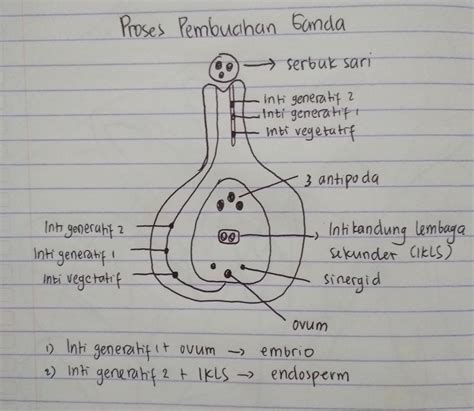 Proses Pembuahan Ganda
serbuk sari
Inti generatif 2
Inti generatif 1
Inti vegetatif
3 antipoda
Inti generatif 2
Inti generatif 1
Inti vegetatif
Inti kandung lembaga
sekunder (IKLS)
sinergid
ovum
1) Inti generatif 1 + ovum → embrio
2) Inti generatif 2 + IKLS → endosperm